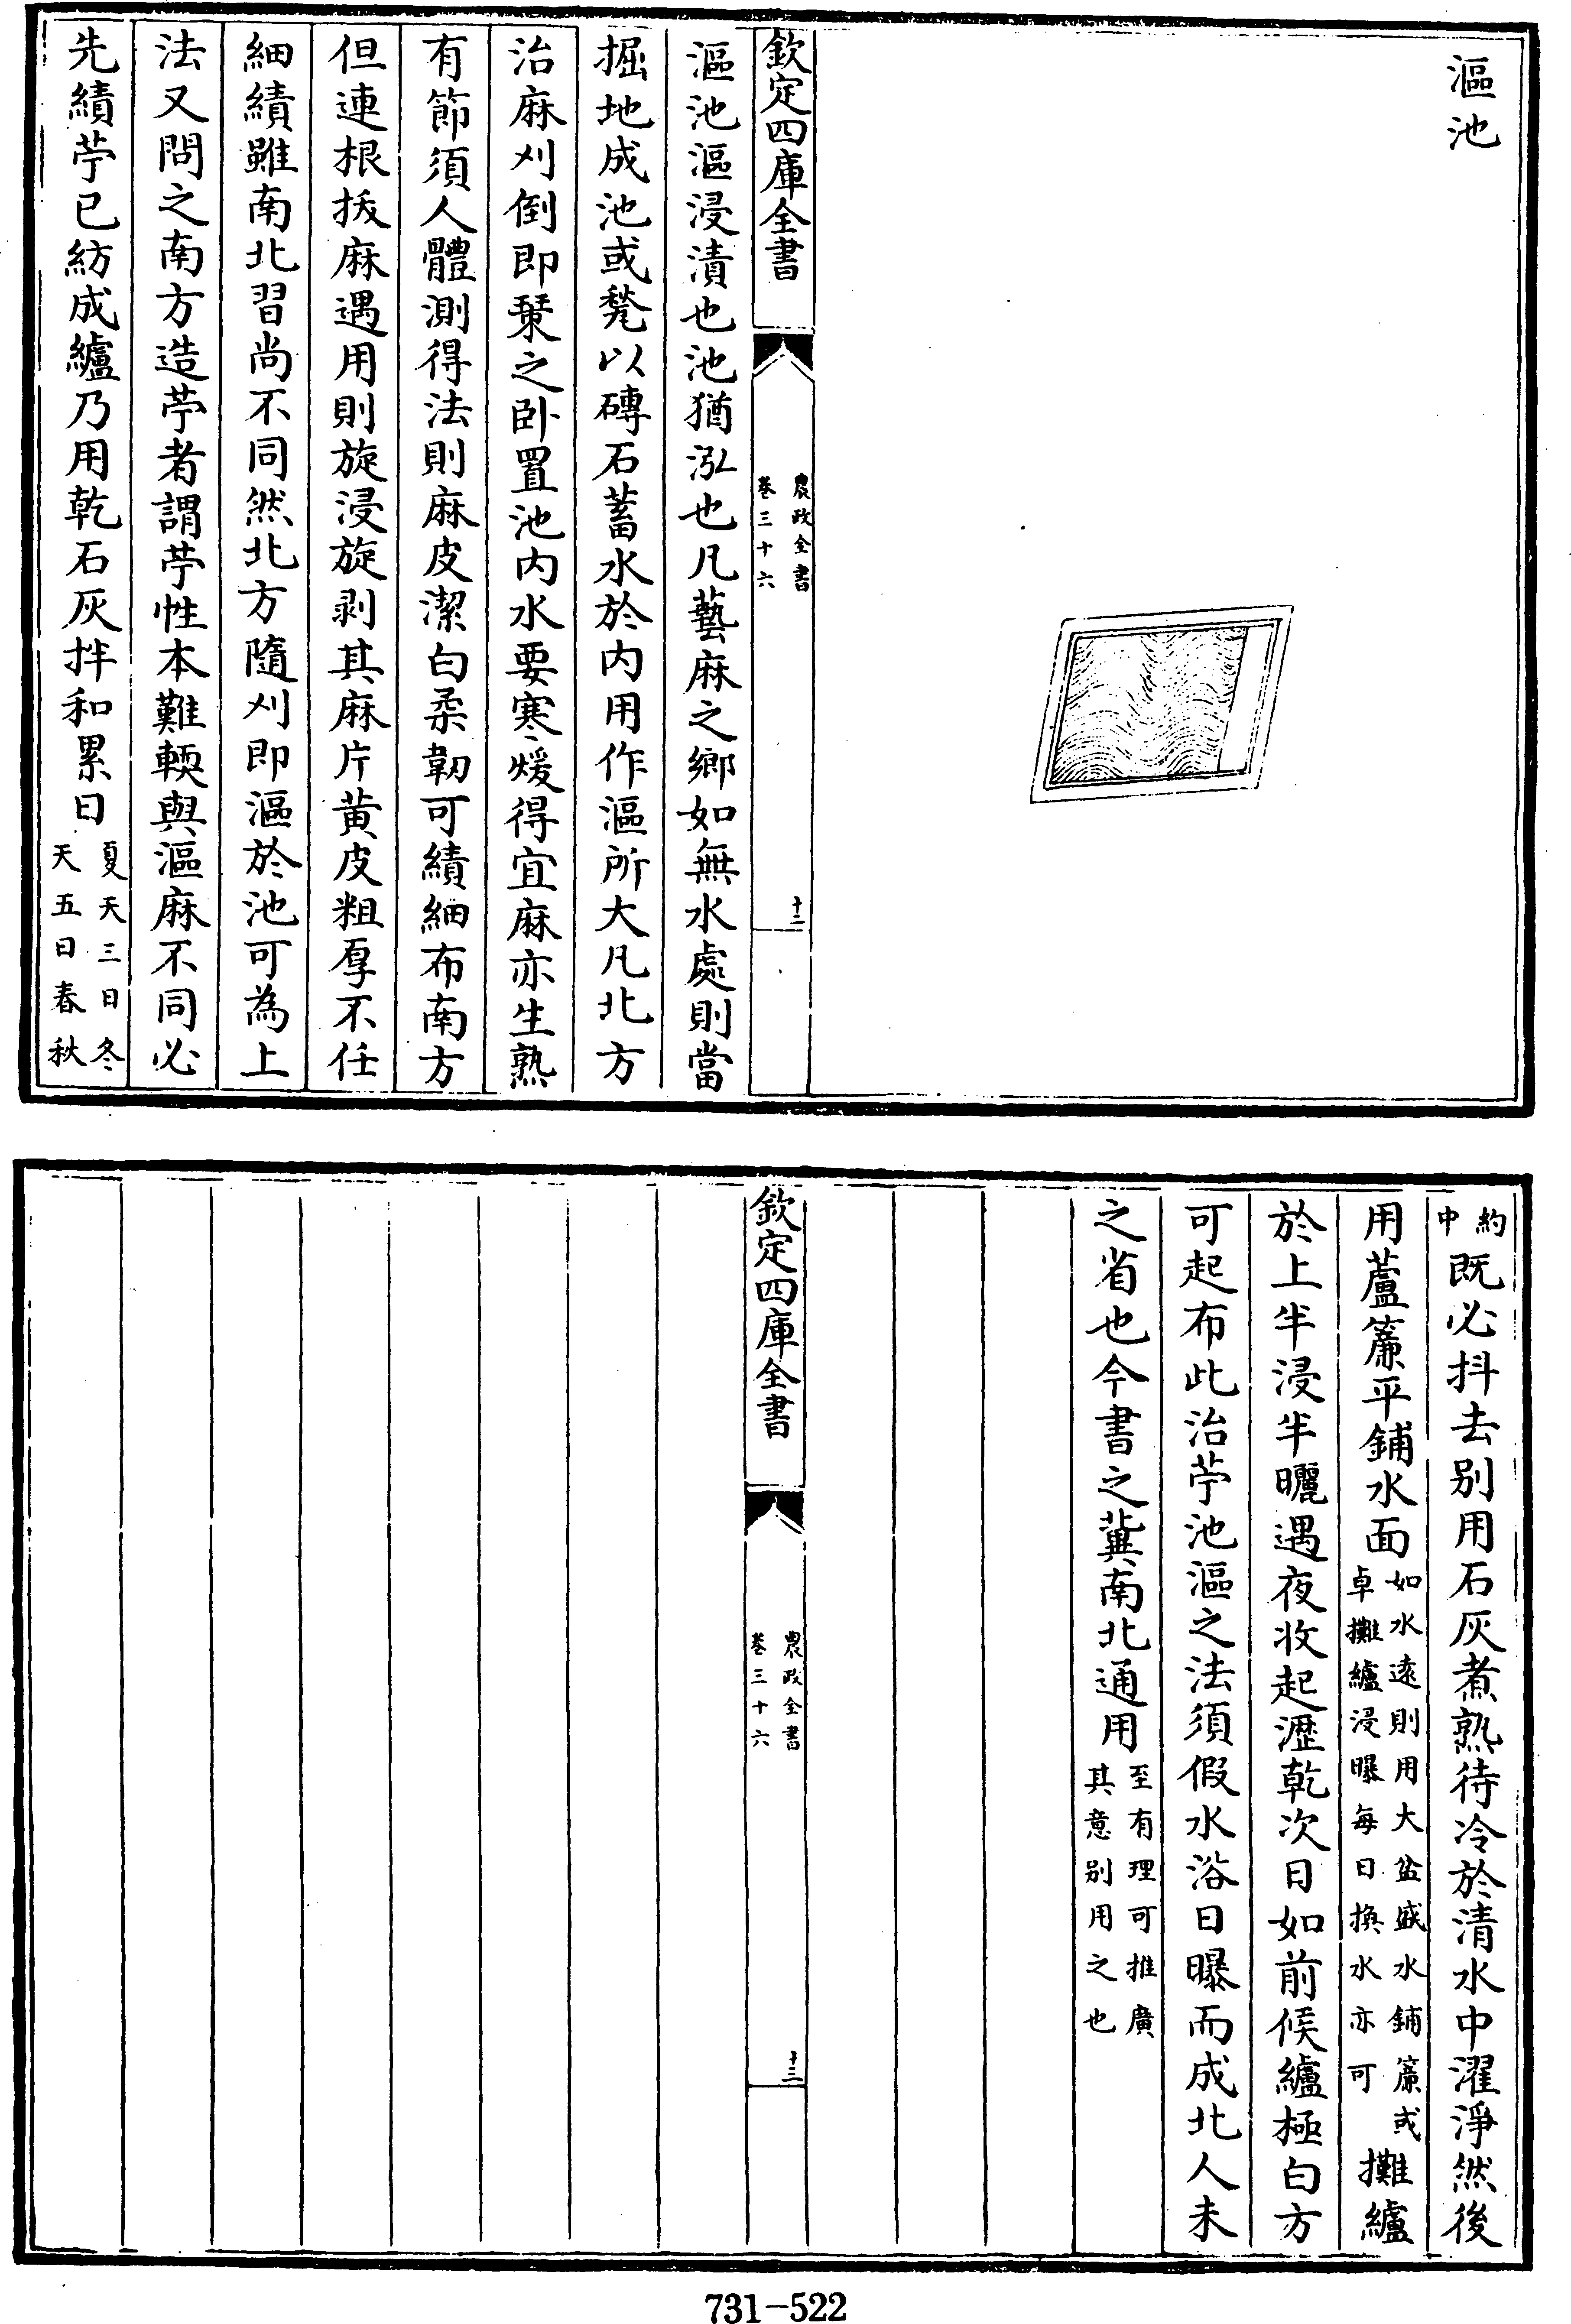 漚池
欽定四庫全書
農政全書
卷三十六
十二
漚池漚浸漬也池猶泓也凡藝麻之鄉如無水處則當
掘地成池或甃以磚石蓄水於內用作漚所大凡北方
治麻刈倒即㯤之卧置池內水要寒煖得宜麻亦生熟
有節須人體測得法則麻皮潔白柔韌可績細布南方
但連根拔麻遇用則旋浸旋剥其麻片黄皮粗厚不任
細績雖南北習尚不同然北方隨刈即漚於池可為上
法又問之南方造苧者謂苧性本難輭與漚麻不同必
先績苧已紡成纑乃用乾石灰拌和累日夏天三日冬
天五日春秋
約
中既必抖去别用石灰煮熟待冷於清水中濯淨然後
用蘆簾平鋪水面如水遠則用大盆盛水鋪簾或
卓攤纑浸曝每日換水亦可攤纑
於上半浸半曬遇夜收起瀝乾次日如前候纑極白方
可起布此治苧池漚之法須假水浴日曝而成北人未
之省也今書之冀南北通用至有理可推廣
其意别用之也
欽定四庫全書
農政全書
卷三十六
十三
731-522